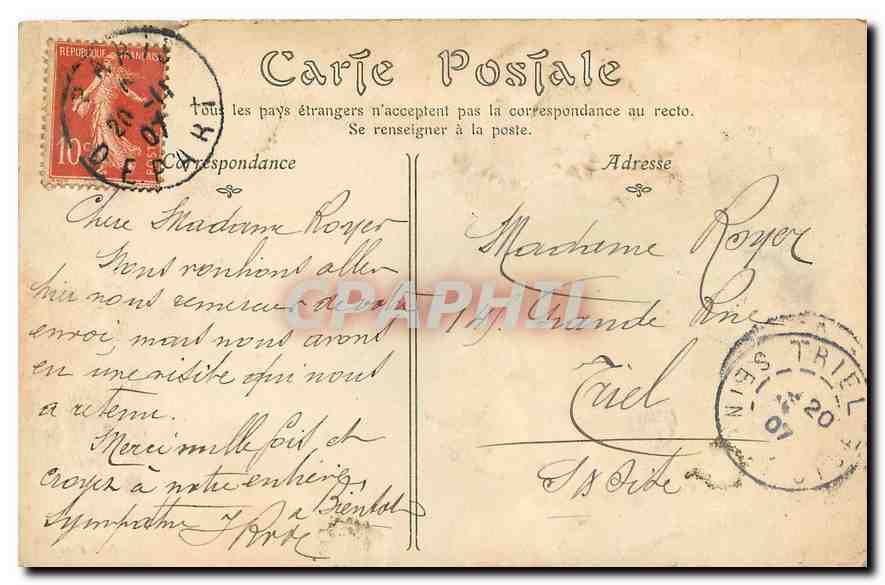 RÉPUBLIQUE FRANÇAISE
10c
POSTES
PARIS
DEPART
20
07
Carte Postale
Tous les pays étrangers n'acceptent pas la correspondance au recto.
Se renseigner à la poste.
Correspondance
Adresse
Chère Madame Royer
Nous voulions aller
hier nous remercier de votre
envoi, mais nous avons
eu une visite qui nous
a retenu.
Merci mille fois et
croyez à notre entière
sympathie à Bientôt
Madame Royer
147 Grande Rüe
Triel
S & Oise
TRIEL
SEINE
20
07
CPAPHIL